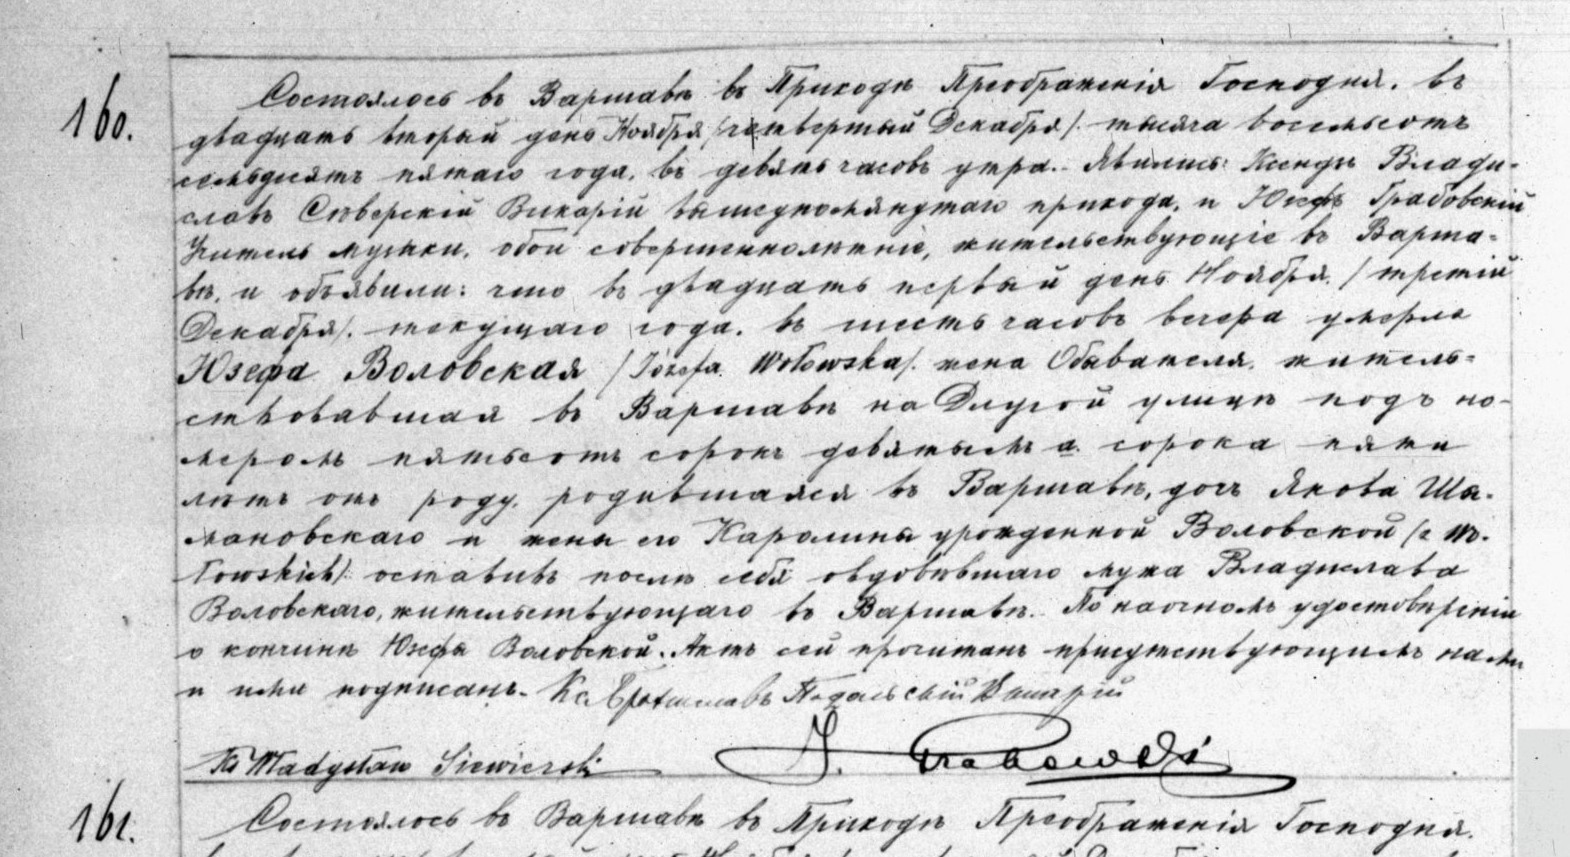 160.
Состоялось въ Варшавѣ въ Приходѣ Преображенія Господня. въ
двадцать вторый день Ноября /четвертый Декабря/. тысяча восемьсотъ
семьдесятъ пятаго года. въ девять часовъ утра.. Явились: Ксендзъ Влади-
славъ Сѣверскій Викарій вышеупомянутаго прихода, и Юзефъ Грабовскій
Учитель музыки, обои совершеннолѣтніе, жительствующіе въ Варша-
вѣ, и объявили: что въ двадцать первый день Ноября, /третій
Декабря/. текущаго года. въ шесть часовъ вечера умерла
Юзефа Воловская /Józefa Wołowska/. жена Обывателя, житель-
ствовавшая въ Варшавѣ на Длугой улицѣ подъ но-
меромъ пятьсотъ сорокъ девятымъ а. сорока пяти
лѣтъ отъ роду. родившаяся въ Варшавѣ, дочь Якова Шы-
мановскаго и жены его Каролины урожденной Воловской /z Wo-
łowskich/. оставивъ послѣ себя овдовѣвшаго мужа Владислава
Воловскаго, жительствующаго въ Варшавѣ. По наочномъ удостовѣреніи
о кончинѣ Юзефы Воловской.. Актъ сей прочитанъ присутствующимъ нами
и ими подписанъ. Кс. Подольскій Викарій
Ks Władysław Siewierski J. Grabowski
161.
Состоялось въ Варшавѣ въ Приходѣ Преображенія Господня.